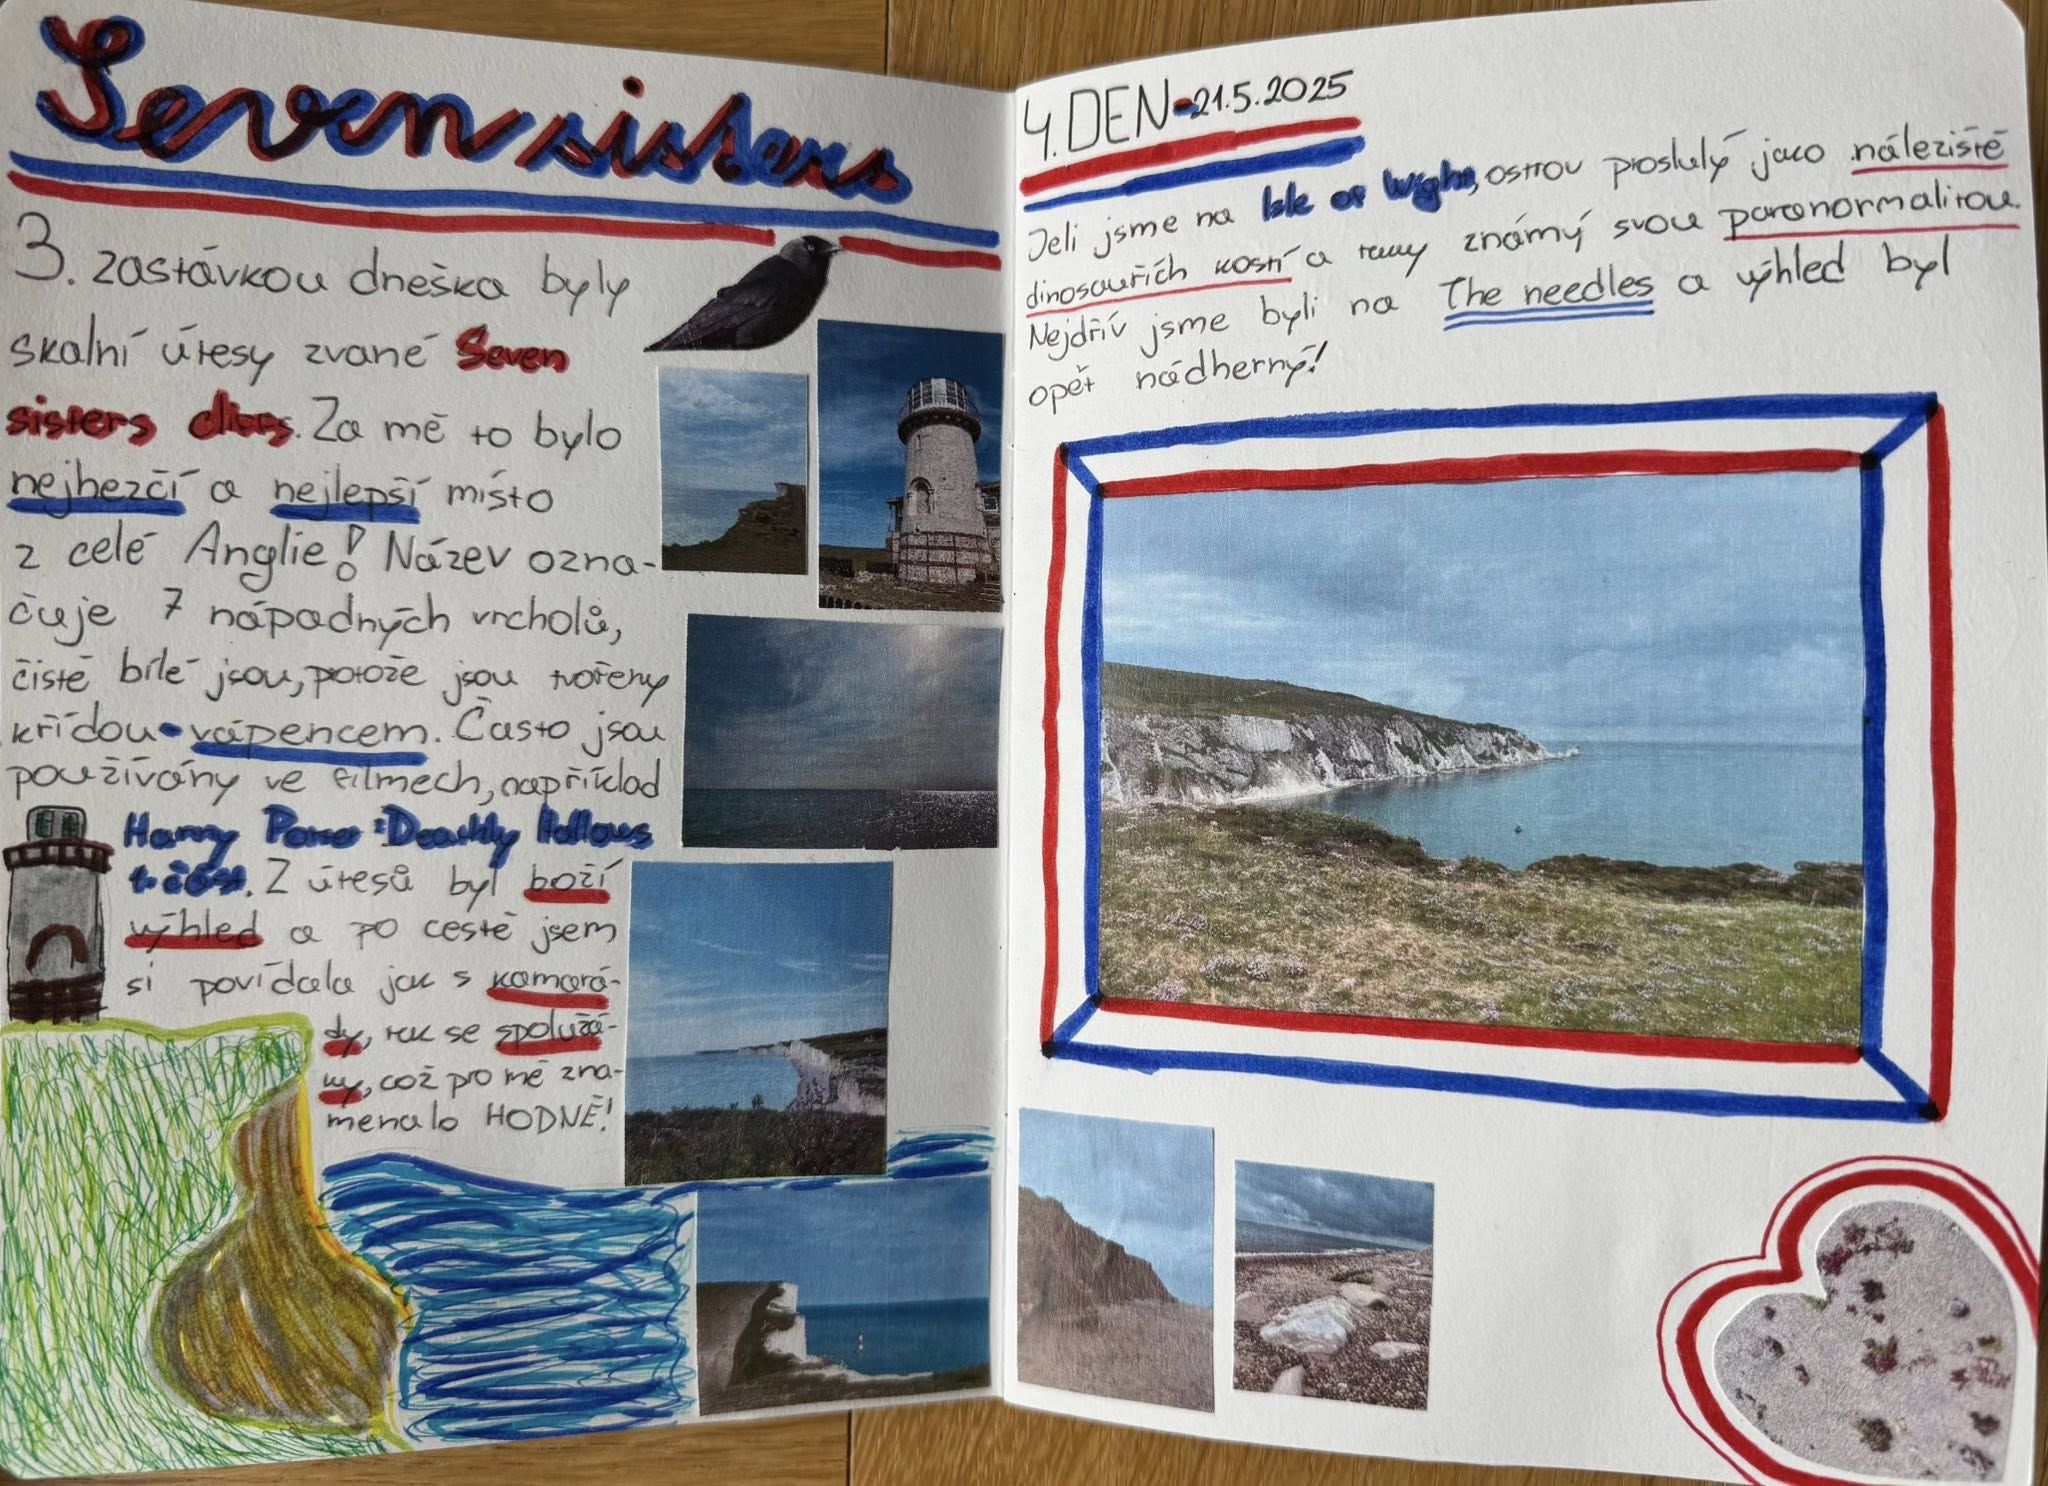 Seven sisters
3. zastávkou dneška byly
skalní útesy zvané Seven
sisters cliffs. Za mě to bylo
nejhezčí a nejlepší místo
z celé Anglie! Název ozna-
čuje 7 nápadných vrcholů,
čistě bílé jsou, protože jsou tvořeny
křídou-vápencem. Často jsou
používány ve filmech, například
Harry Potter: Deathly Hallows
1. část. Z útesů byl boží
výhled a po cestě jsem
si povídala jak s kamará-
dy, tak se spolužá-
ky, což pro mě zna-
menalo HODNĚ!
4. DEN-21.5.2025
Jeli jsme na Isle of Wight, ostrov proslulý jako náleziště
dinosauřích kostí a taky známý svou paranormalitou.
Nejdřív jsme byli na The needles a výhled byl
opět nádherný!